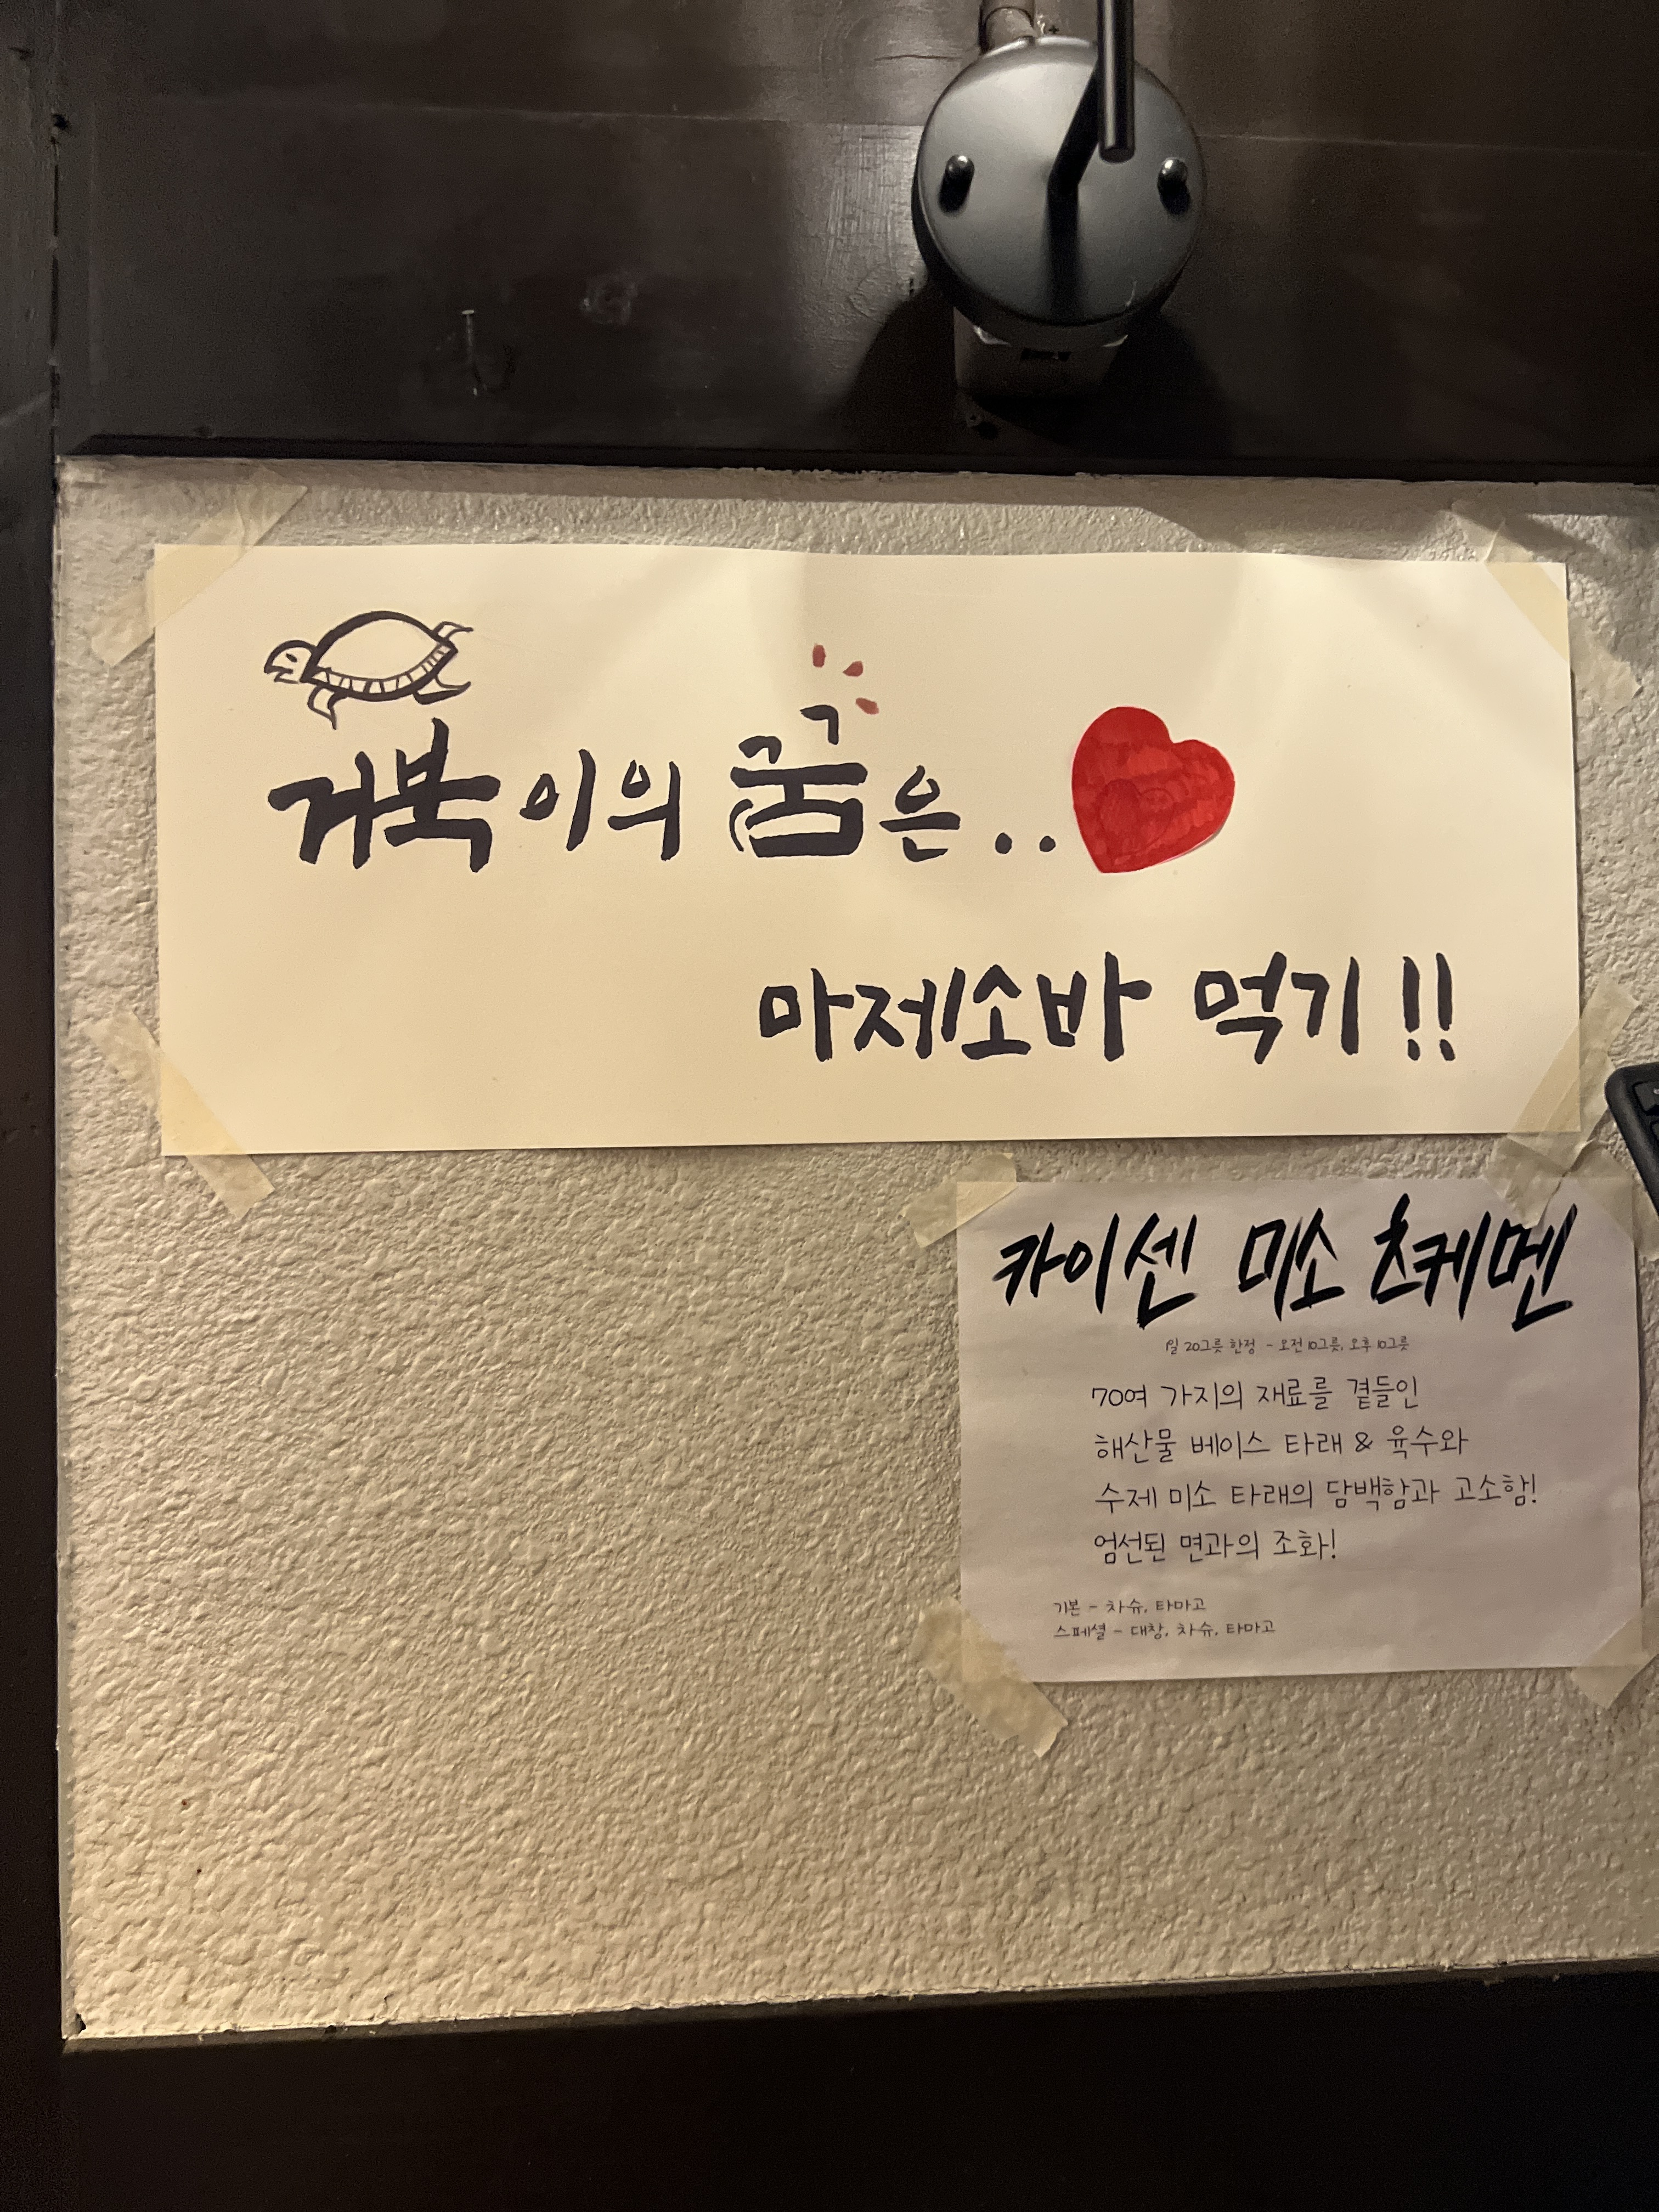 거북이의 꿈은..
마제소바 먹기!!
카이센 미소 츠케멘
1일 20그릇 한정 - 오전 10그릇, 오후 10그릇
70여 가지의 재료를 곁들인
해산물 베이스 타래 & 육수와
수제 미소 타래의 담백함과 고소함!
엄선된 면과의 조화!
기본 - 차슈, 타마고
스페셜 - 대창, 차슈, 타마고